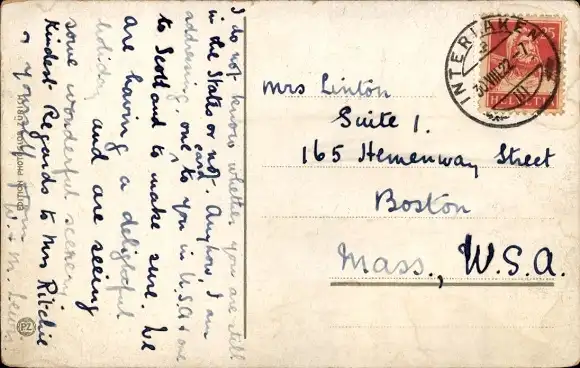 I do not know whether you are still
in the States or not. Anyhow, I am
addressing one card to you in U.S.A & one
to Scotland to make sure. We
are having a delightful
holiday and are seeing
some wonderful scenery
Kindest Regards to Mrs Ritchie
& yourself from
W. & M.
Mrs Linton
Suite 1.
165 Hemenway Street
Boston
Mass., U.S.A.
INTERLAKEN
30.VIII.22.-7
III
25
HELVETIA
PZ